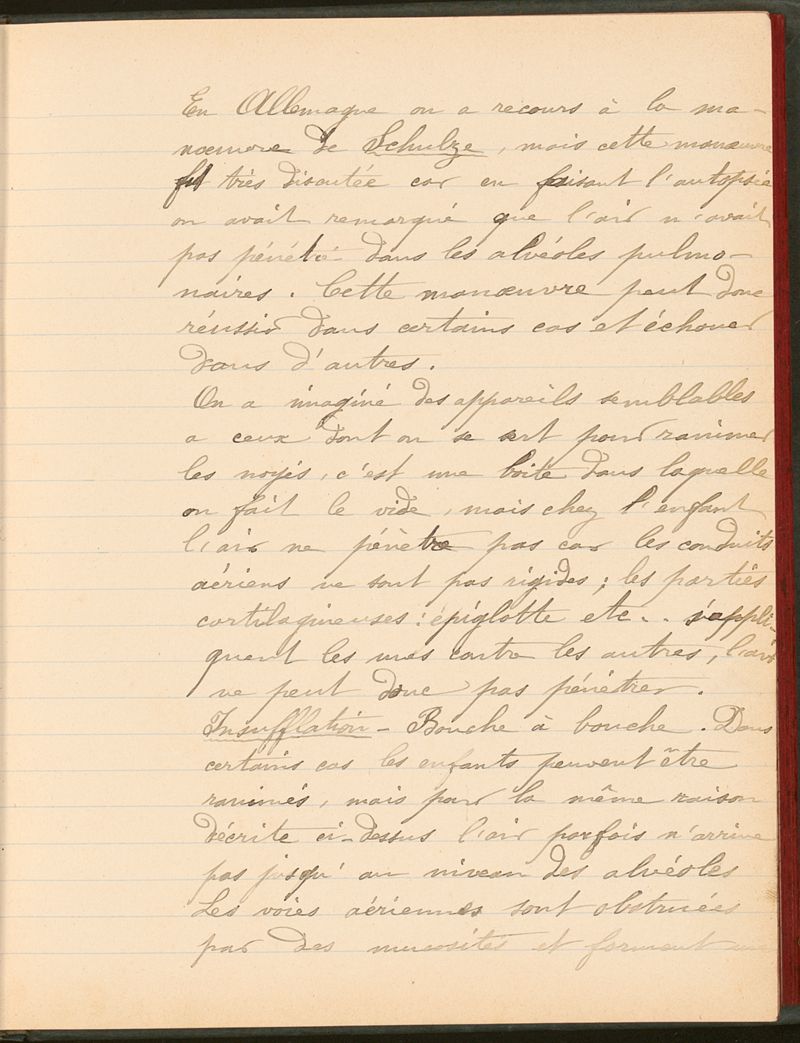 En Allemagne on a recours à la ma-
nœuvre de Schulze, mais cette manœuvre
fut très discutée car en faisant l'autopsie
on avait remarqué que l'air n'avait
pas pénétré dans les alvéoles pulmo-
naires. Cette manœuvre peut donc
réussir dans certains cas et échouer
dans d'autres.
On a imaginé des appareils semblables
a ceux dont on se sert pour ranimer
les noyés, c'est une boite dans laquelle
on fait le vide, mais chez l'enfant
l'air ne pénètre pas car les conduits
aériens ne sont pas rigides; les parties
cartilagineuses: épiglotte etc... s'appli-
quent les unes contre les autres, l'air
ne peut donc pas pénétrer.
Insufflation - Bouche à bouche. Dans
certains cas les enfants peuvent être
ranimés, mais pour la même raison
décrite ci-dessus l'air parfois n'arrive
pas jusqu'au niveau des alvéoles
Les voies aériennes sont obstruées
par des mucosités et forment un